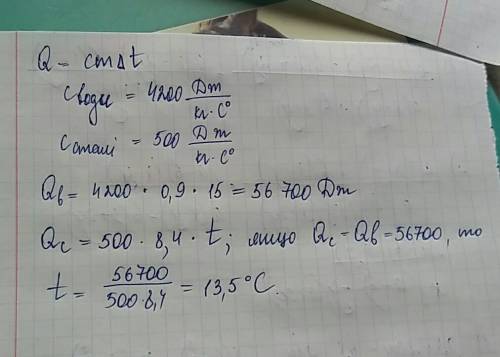 Q = cmΔt
Cводи = 4200 Дж/кг·C°
Cсталі = 500 Дж/кг·C°
Qв = 4200 · 0,9 · 15 = 56 700 Дж
Qс = 500 · 8,4 · t; якщо Qс = Qв = 56700, то
t = 56700/500·8,4 = 13,5°C.